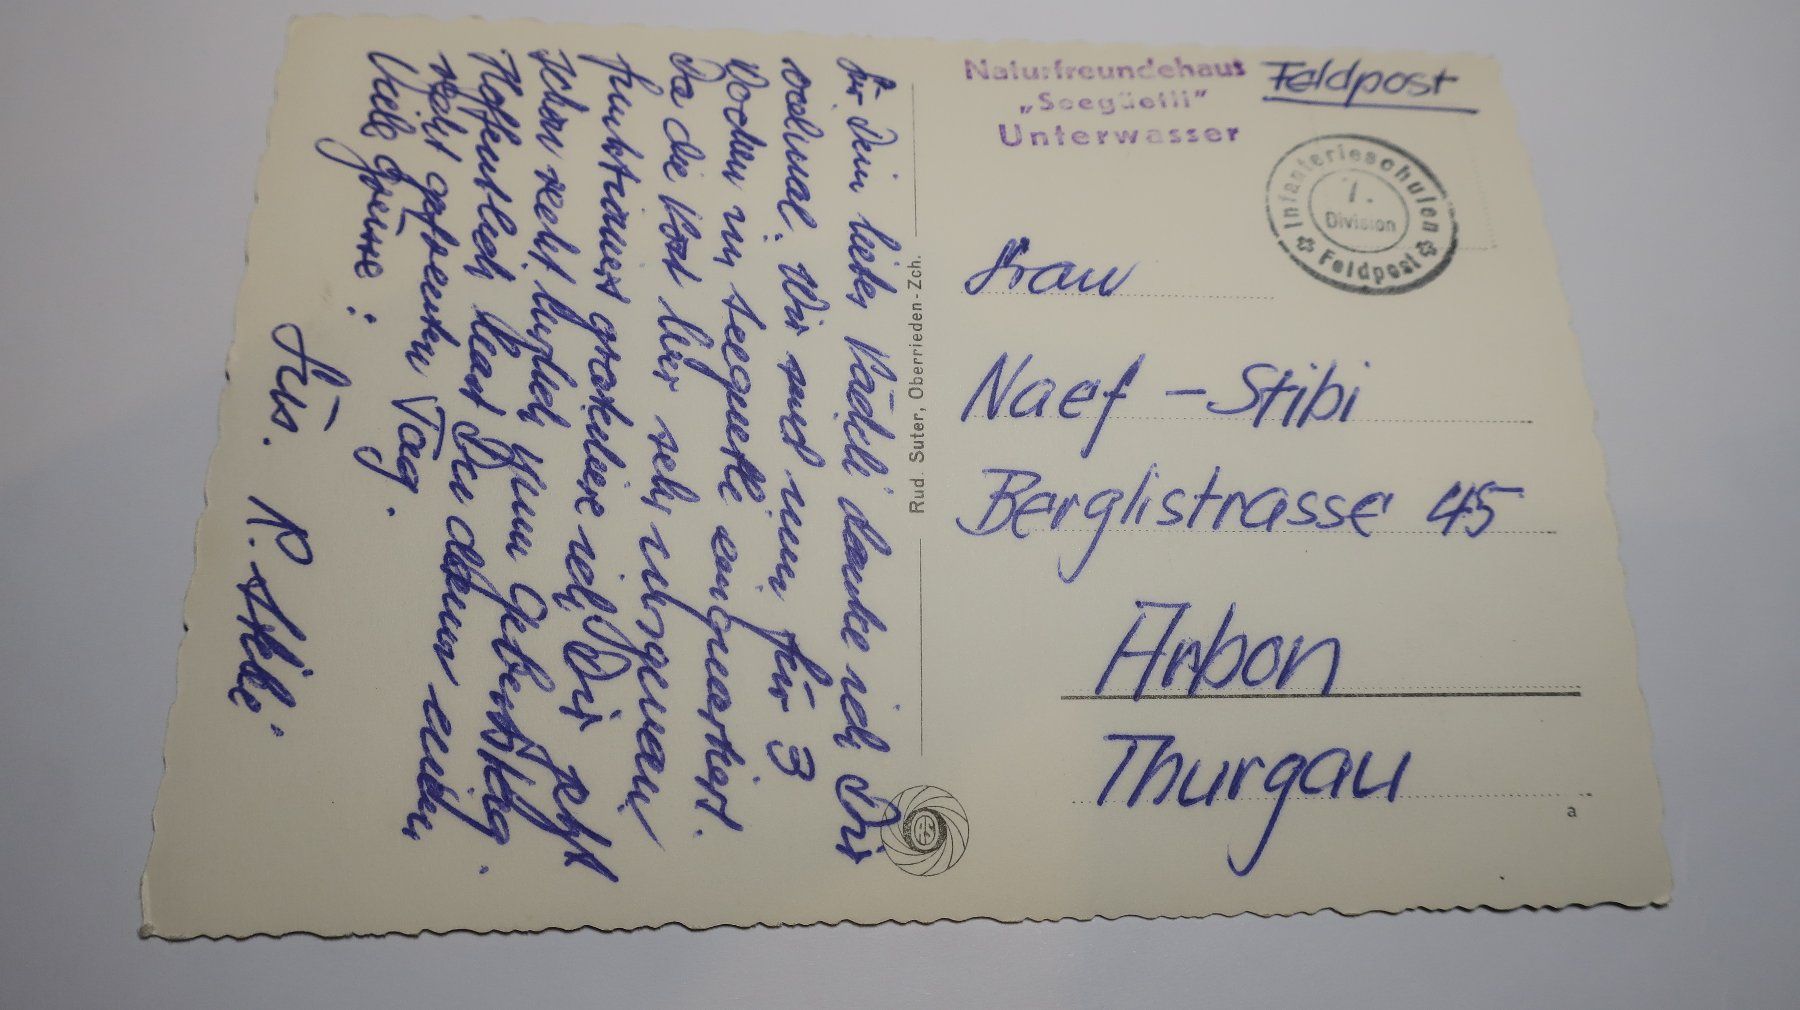 Für Dein liebes Päckli danke ich Dir
vielmal. Wir sind nun für 3
Wochen im Seeguetli einquartiert.
Da die Post hier sehr ungenau
funktioniert gratuliere ich Dir jetzt
schon recht herzlich zum Geburtstag.
Hoffentlich hast Du dann einen
recht gefreuten Tag.
Viele Grüsse:
Füs. R. Stibi.
Rud. Suter, Oberrieden-Zch.
RS
Naturfreundehaus
„Seegüetli"
Unterwasser
Feldpost
Infanterieschulen
7.
Division
Feldpost
Frau
Naef - Stibi
Berglistrasse 45
Arbon
Thurgau
a